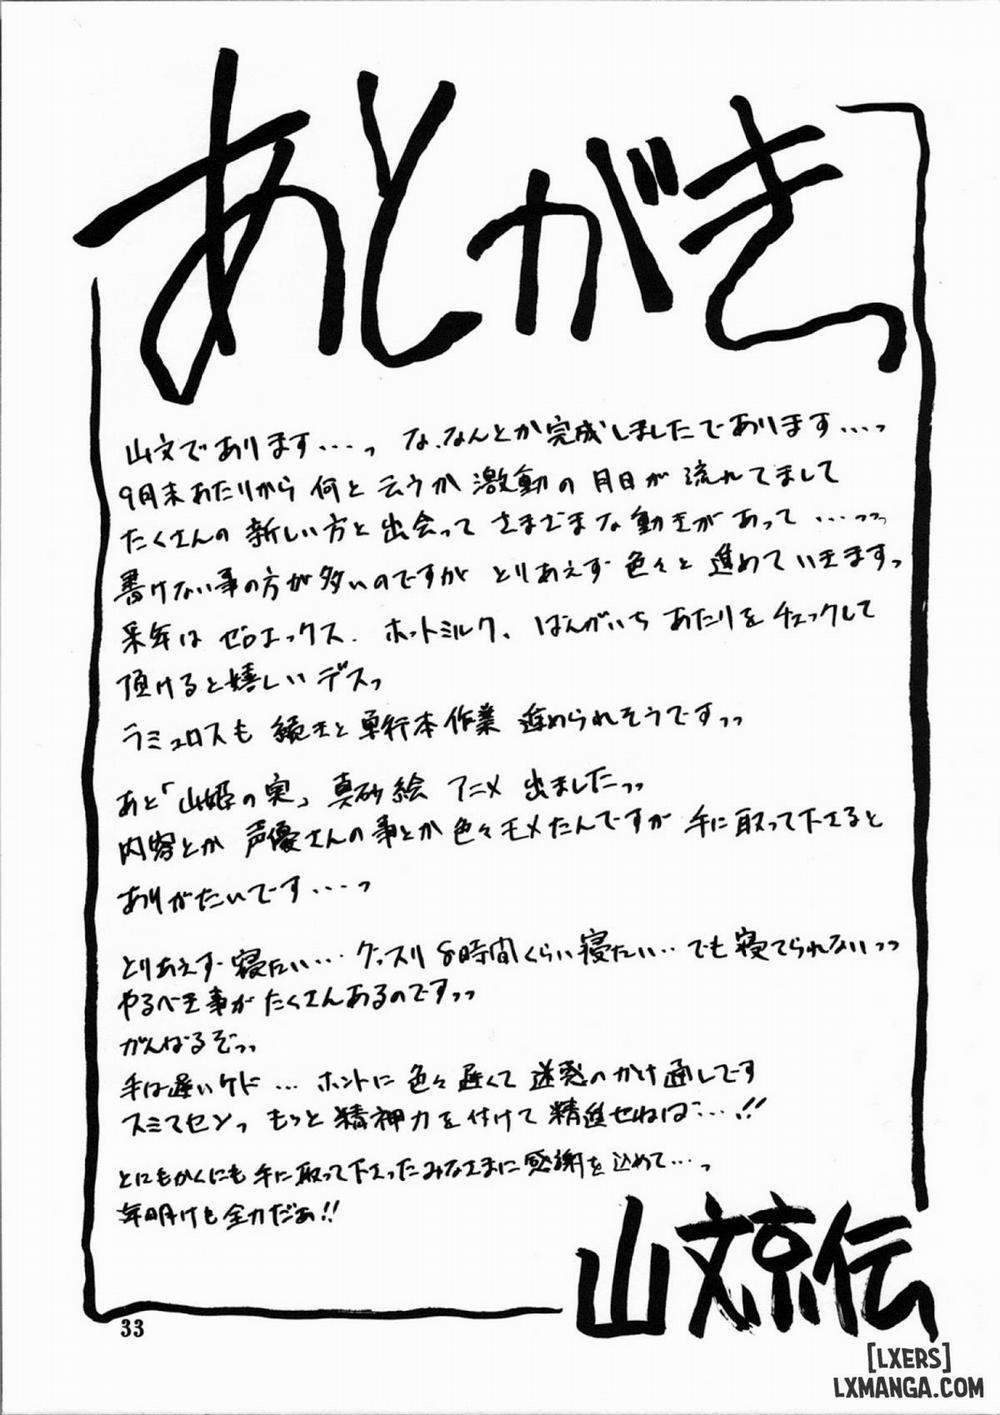 あとがきっ
山文であります・・・・っ な、なんとか完成しましたであります・・・・っ
9月末あたりから 何と云うか 激動の 月日が 流れてまして
たくさんの 新しい方と 出会って さまざまな 動きがあって ・・・・っっ
書けない事の方が多いのですが とりあえず 色々と 進めていきますっ
来年は ゼロエックス、ホットミルク、ばんがいち あたりを チェックして
頂けると嬉しい デスっ
ラミュロスも 続きと 単行本作業 進められそうですっっ
あと「山姫の実」真砂絵 アニメ 出ましたっっ
内容とか 声優さんの事とか 色々モメたんですが 手に取って下さると
ありがたいです・・・・っ
とりあえず 寝たい・・・ グッスリ 8時間くらい 寝たい・・でも 寝てられないっっ
やるべき事が たくさんあるのですっっ
がんばるぞっっ
手は遅いケド ・・・ ホントに 色々 遅くて 迷惑のかけ通しです
スミマセンっ もっと 精神力を付けて 精進せねば・・・・!!
とにもかくにも 手に取って下さったみなさまに 感謝を 込めて・・・っ
年明けも 全力だぁ!!
山文京伝
33
[LXERS]
LXMANGA.COM